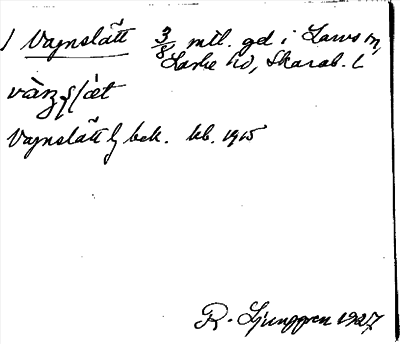 Vagnslätt 3/8 mtl. gd i Larvs sn,
Laske hd, Skarab. l
Vagnslätt bek. kb. 1915
R. Ljunggren 1927